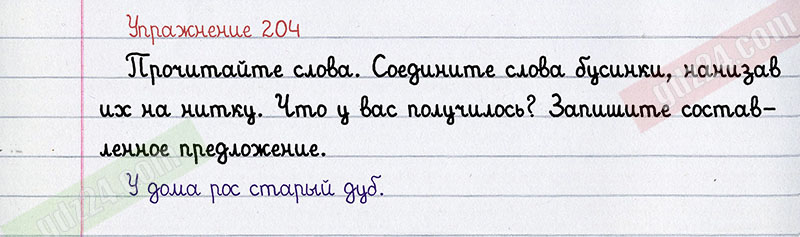 Упражнение 204
Прочитайте слова. Соедините слова бусинки, нанизав
их на нитку. Что у вас получилось? Запишите состав-
ленное предложение.
У дома рос старый дуб.